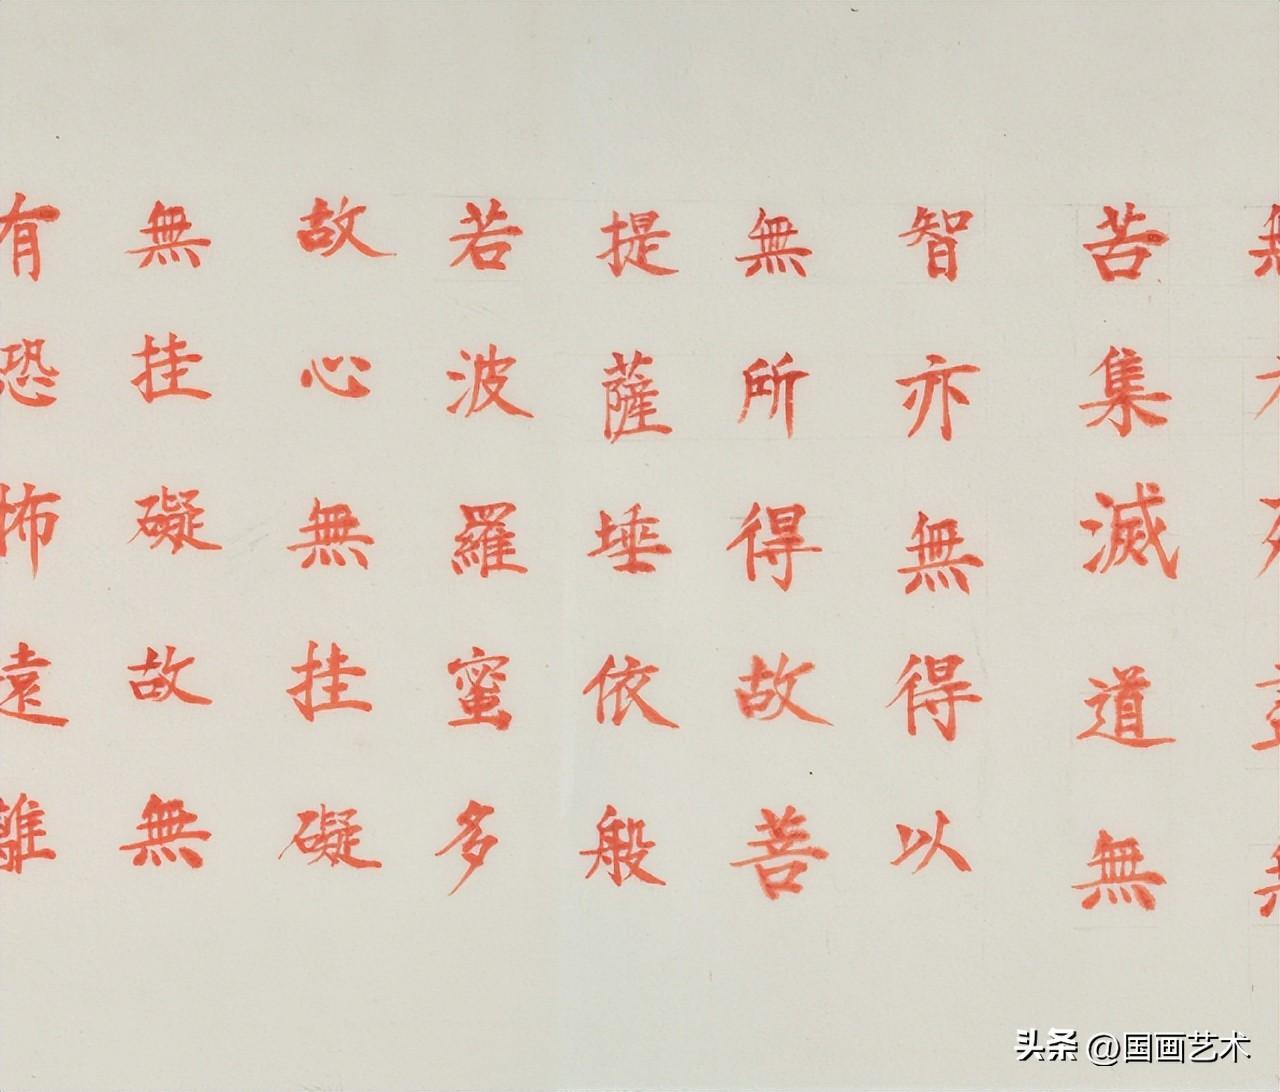 苦集滅道無
智亦無得以
無所得故菩
提薩埵依般
若波羅蜜多
故心無挂礙
無挂礙故無
有恐怖遠離
头条 @国画艺术